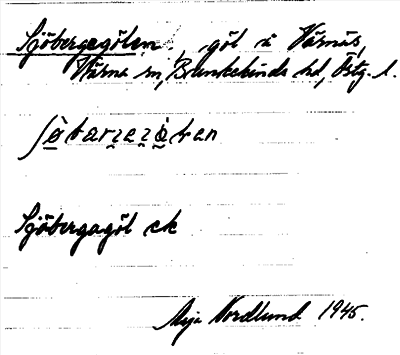 Sjöbergagölen, göl i Värnäs,
Wärna sn, Bankekinds hd, Östg. l.
Sjöbergagöl ek
Maja Nordlund 1945.